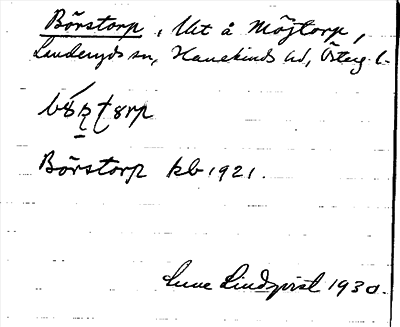 Börstorp, Utt å Möjtorp,
Landeryds sn, Hanekinds hd, Österg. l.
Börstorp kb 1921.
Sune Lindqvist 1930.